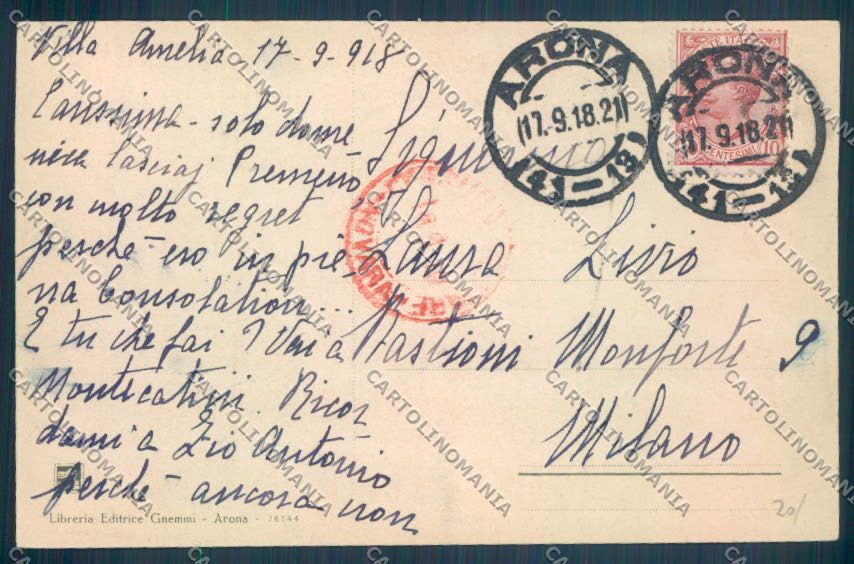 Villa Amelia 17-9-918
Carissima - solo dome
nica lasciai Premeno,
con molto regret
perchè ero in pie
na Consolation...
E tu che fai? Vai a
Montecatini. Ricor
dami a Zio Antonio
perchè ancora non
Libreria Editrice Gnemmi - Arona - 76144
Signorina
Laura Livio
Bastioni Monforte 9
Milano
ARONA
17.9.18.21
(41-18)
ARONA
17.9.18.21
(41-18)
CENTESIMI 10
20/
CARTOLINOMANIA